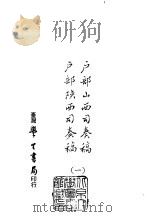 戶部山西司奏稿
戶部陝西司奏稿
(一)
臺灣學生書局印行